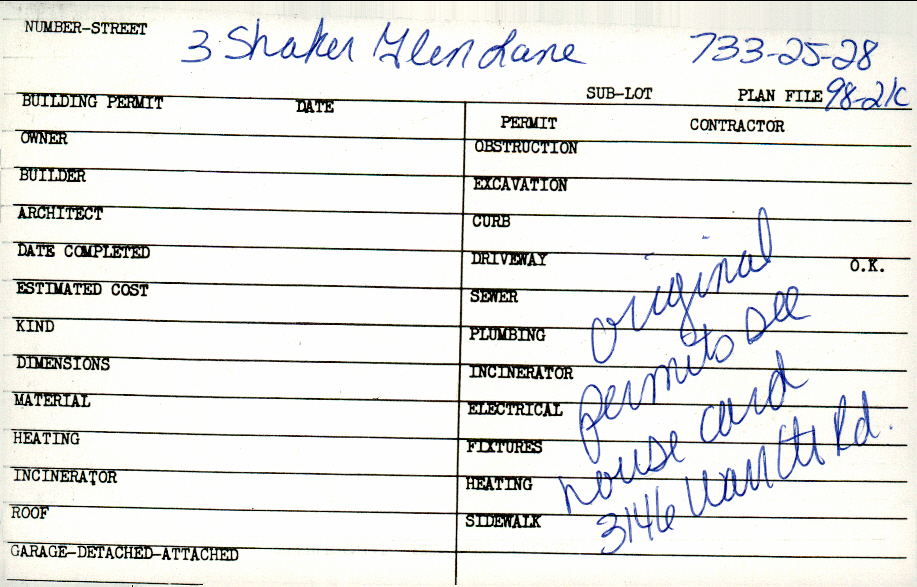 NUMBER-STREET 3 Shaker Glen Lane 733-25-28
SUB-LOT PLAN FILE 98-21C
BUILDING PERMIT DATE
PERMIT CONTRACTOR
OWNER
OBSTRUCTION
BUILDER
EXCAVATION
ARCHITECT
CURB
DATE COMPLETED
DRIVEWAY O.K.
ESTIMATED COST
SEWER
KIND
PLUMBING
DIMENSIONS
INCINERATOR
MATERIAL
ELECTRICAL
HEATING
FIXTURES
INCINERATOR
HEATING
ROOF
SIDEWALK
GARAGE-DETACHED-ATTACHED
original
permits see
house card
3146 Rd.